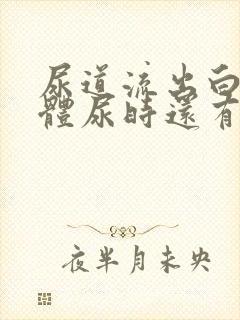 尿道流出白
體尿時還有
夜半月未央